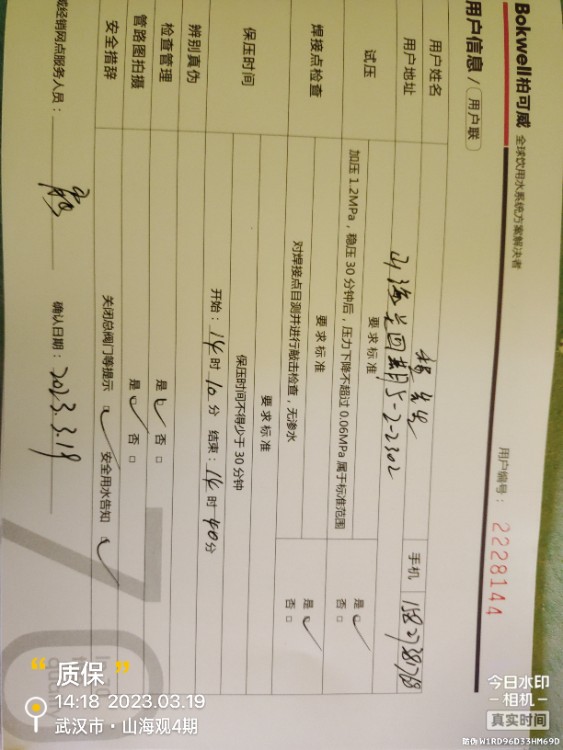 Bokwell柏可威 全球饮用水系统方案解决者
用户信息/用户联
用户编号: 2228144
用户姓名 杨先生 手机
用户地址 山海观四期5-2-2302
试压 要求标准
加压 1.2MPa,稳压 30 分钟后,压力下降不超过 0.06MPa 属于标准范围 是☑ 否□
焊接点检查 要求标准
对焊接点目测并进行敲击检查,无渗水 是☑ 否□
保压时间 要求标准
保压时间不得少于 30 分钟
开始: 14时10分 结束: 14时40分
辨别真伪 是☑ 否□
检查管理 是☑ 否□
管路图拍摄
安全措辞 关闭总阀门等提示 ☑ 安全用水告知 ☑
威经销网点服务人员: 确认日期: 2023.3.19
70
“质保”
14:18 2023.03.19
武汉市·山海观4期
今日水印
-相机-
真实时间
防伪W1RD96D33HM69D